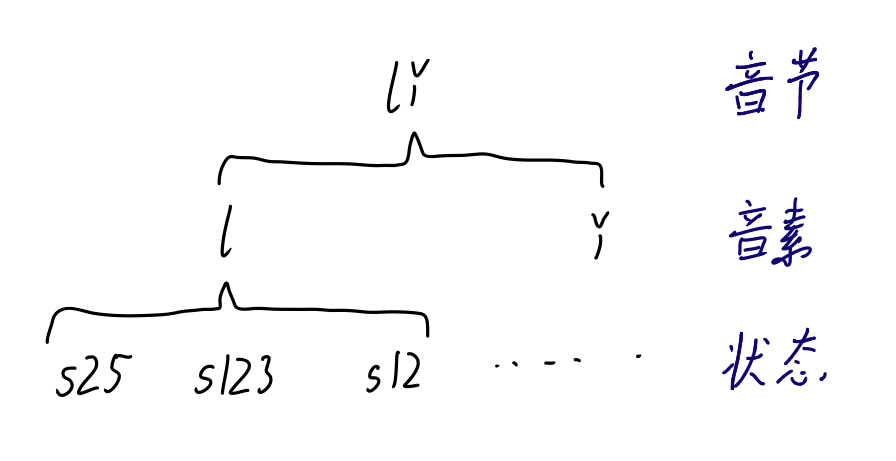 lǐ 音节
l ǐ 音素
s25 s123 s12 ...... 状态